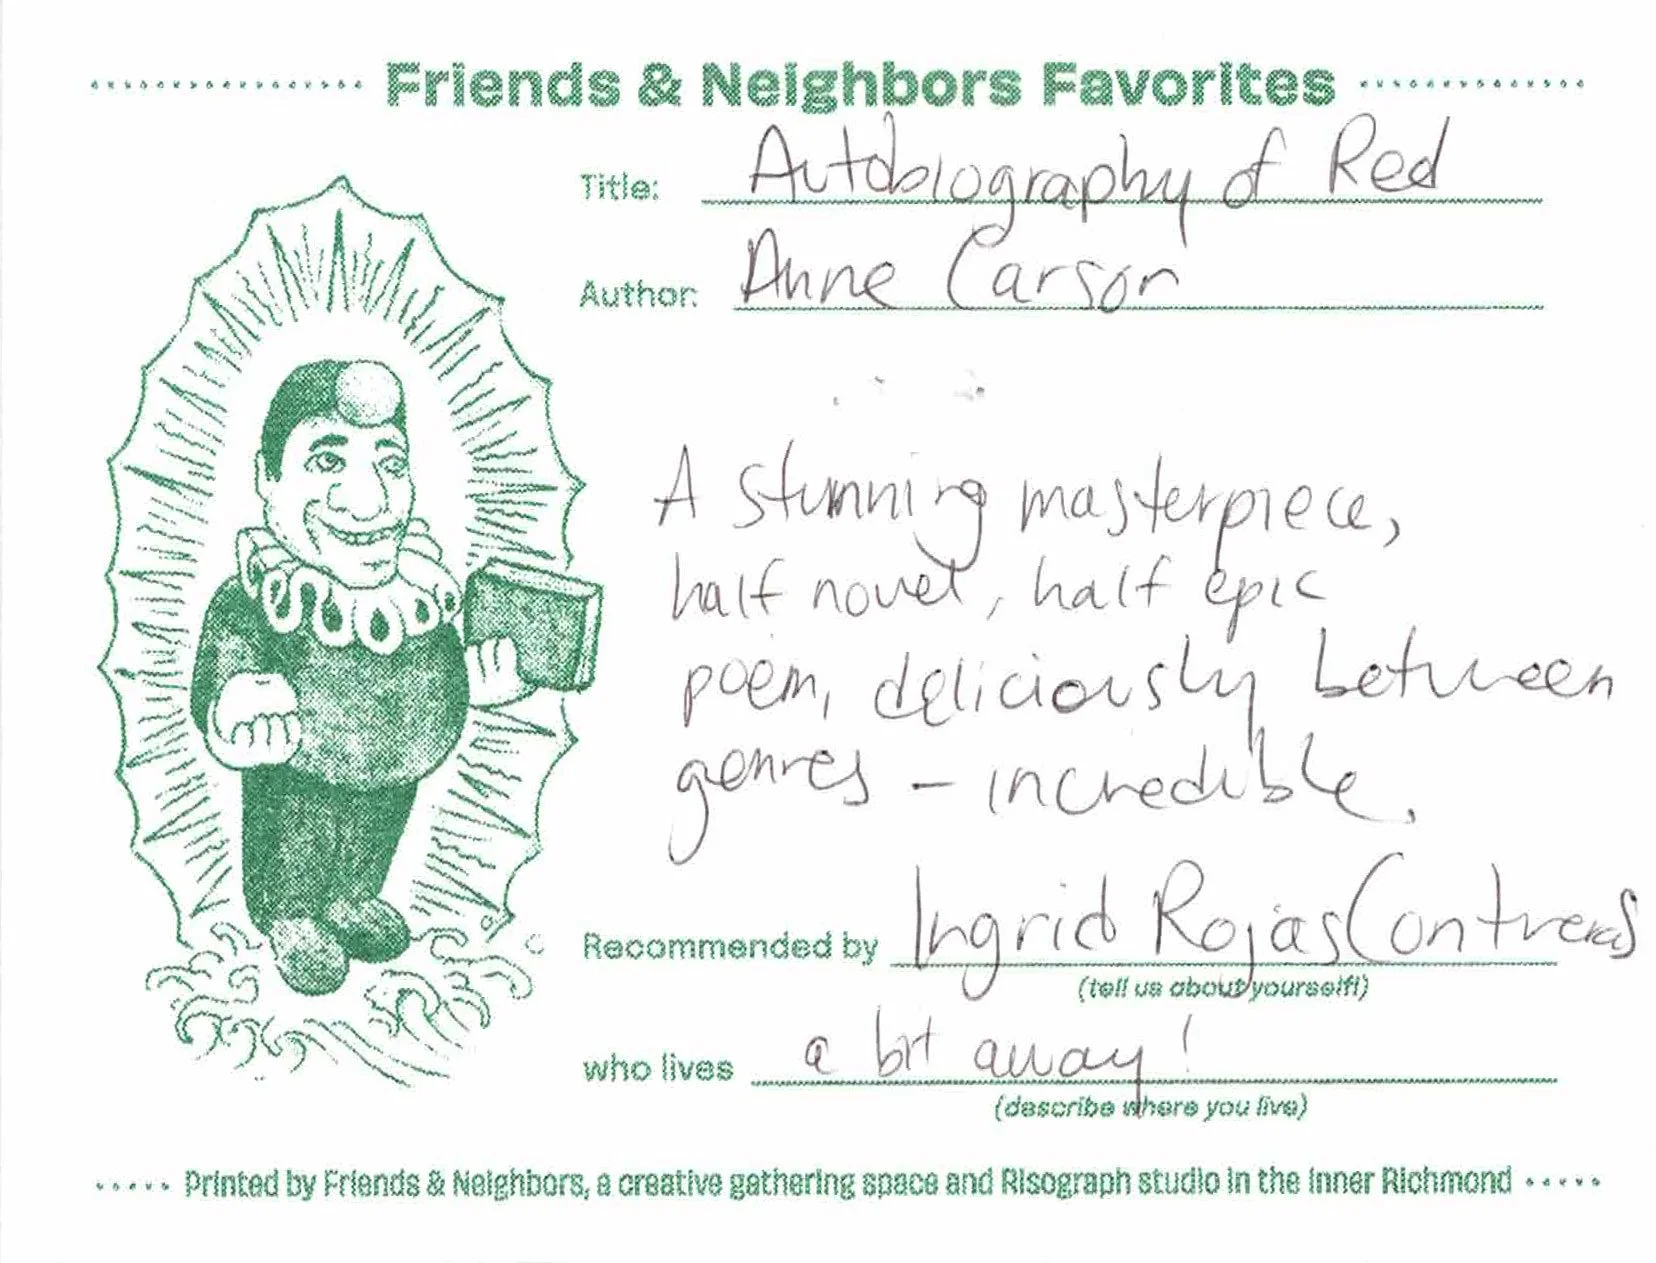 Friends & Neighbors Favorites
Title: Autobiography of Red
Author: Anne Carson
A stunning masterpiece,
half novel, half epic
poem, deliciously between
genres – incredible.
Recommended by Ingrid Rojas Contreras
(tell us about yourself!)
who lives a bit away!
(describe where you live)
Printed by Friends & Neighbors, a creative gathering space and Risograph studio in the Inner Richmond